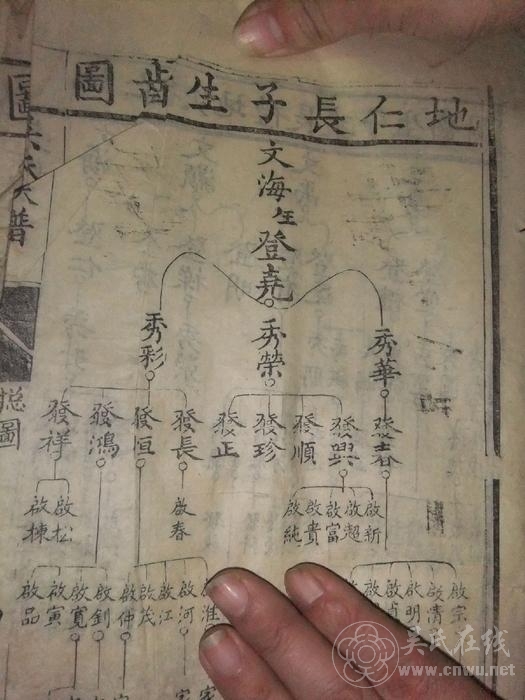 地仁長子生齒圖
文海生登堯
秀華
秀榮
秀彩
發春
發興
發順
發珍
發正
發長
發恒
發鴻
發祥
啟新
啟超
啟富
啟貴
啟純
啟春
啟松
啟棟
啟宗
啟清
啟明
啟淮
啟河
啟江
啟茂
啟仲
啟釗
啟寬
啟寅
啟品
總圖
吴氏在线
www.cnwu.net